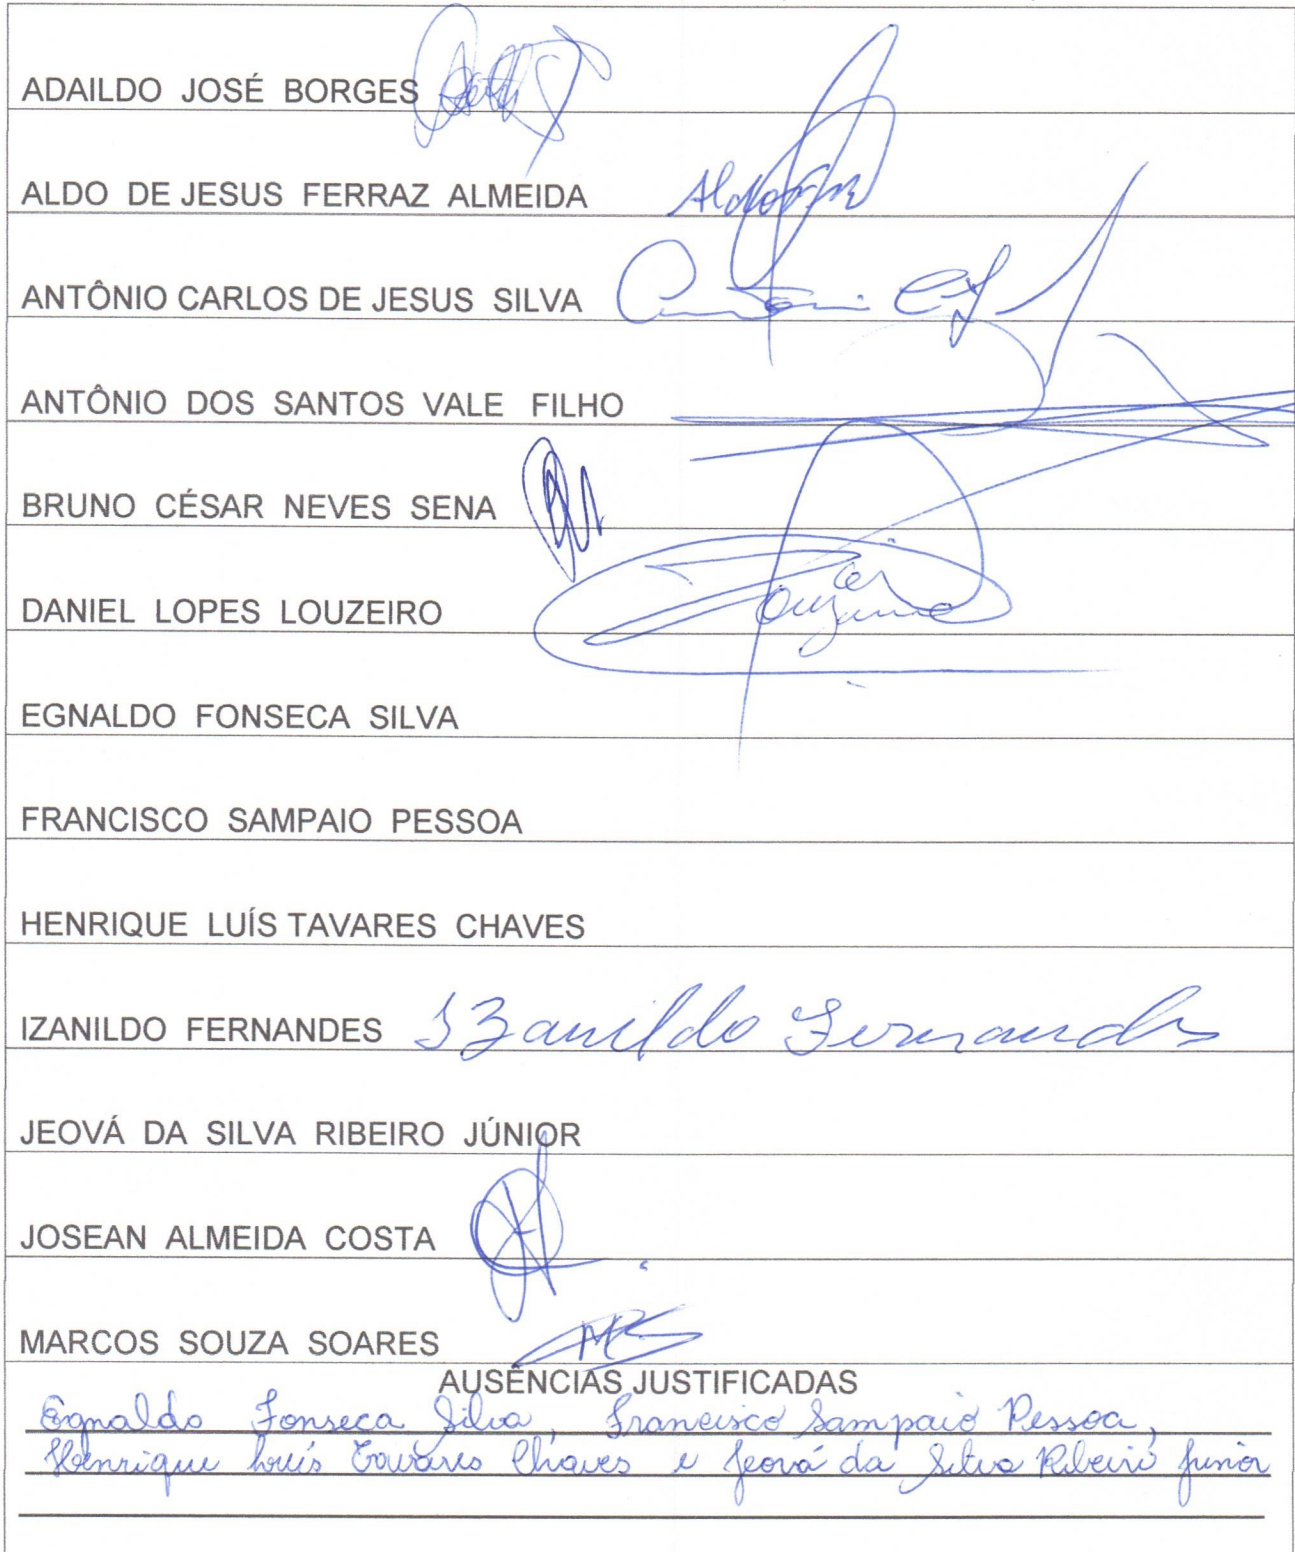 ADAILDO JOSÉ BORGES
ALDO DE JESUS FERRAZ ALMEIDA
ANTÔNIO CARLOS DE JESUS SILVA
ANTÔNIO DOS SANTOS VALE FILHO
BRUNO CÉSAR NEVES SENA
DANIEL LOPES LOUZEIRO
EGNALDO FONSECA SILVA
FRANCISCO SAMPAIO PESSOA
HENRIQUE LUÍS TAVARES CHAVES
IZANILDO FERNANDES Izanildo Fernandes
JEOVÁ DA SILVA RIBEIRO JÚNIOR
JOSEAN ALMEIDA COSTA
MARCOS SOUZA SOARES
AUSÊNCIAS JUSTIFICADAS
Egnaldo Fonseca Silva, Francisco Sampaio Pessoa,
Henrique Luís Tavares Chaves e Jeová da Silva Ribeiro Junior